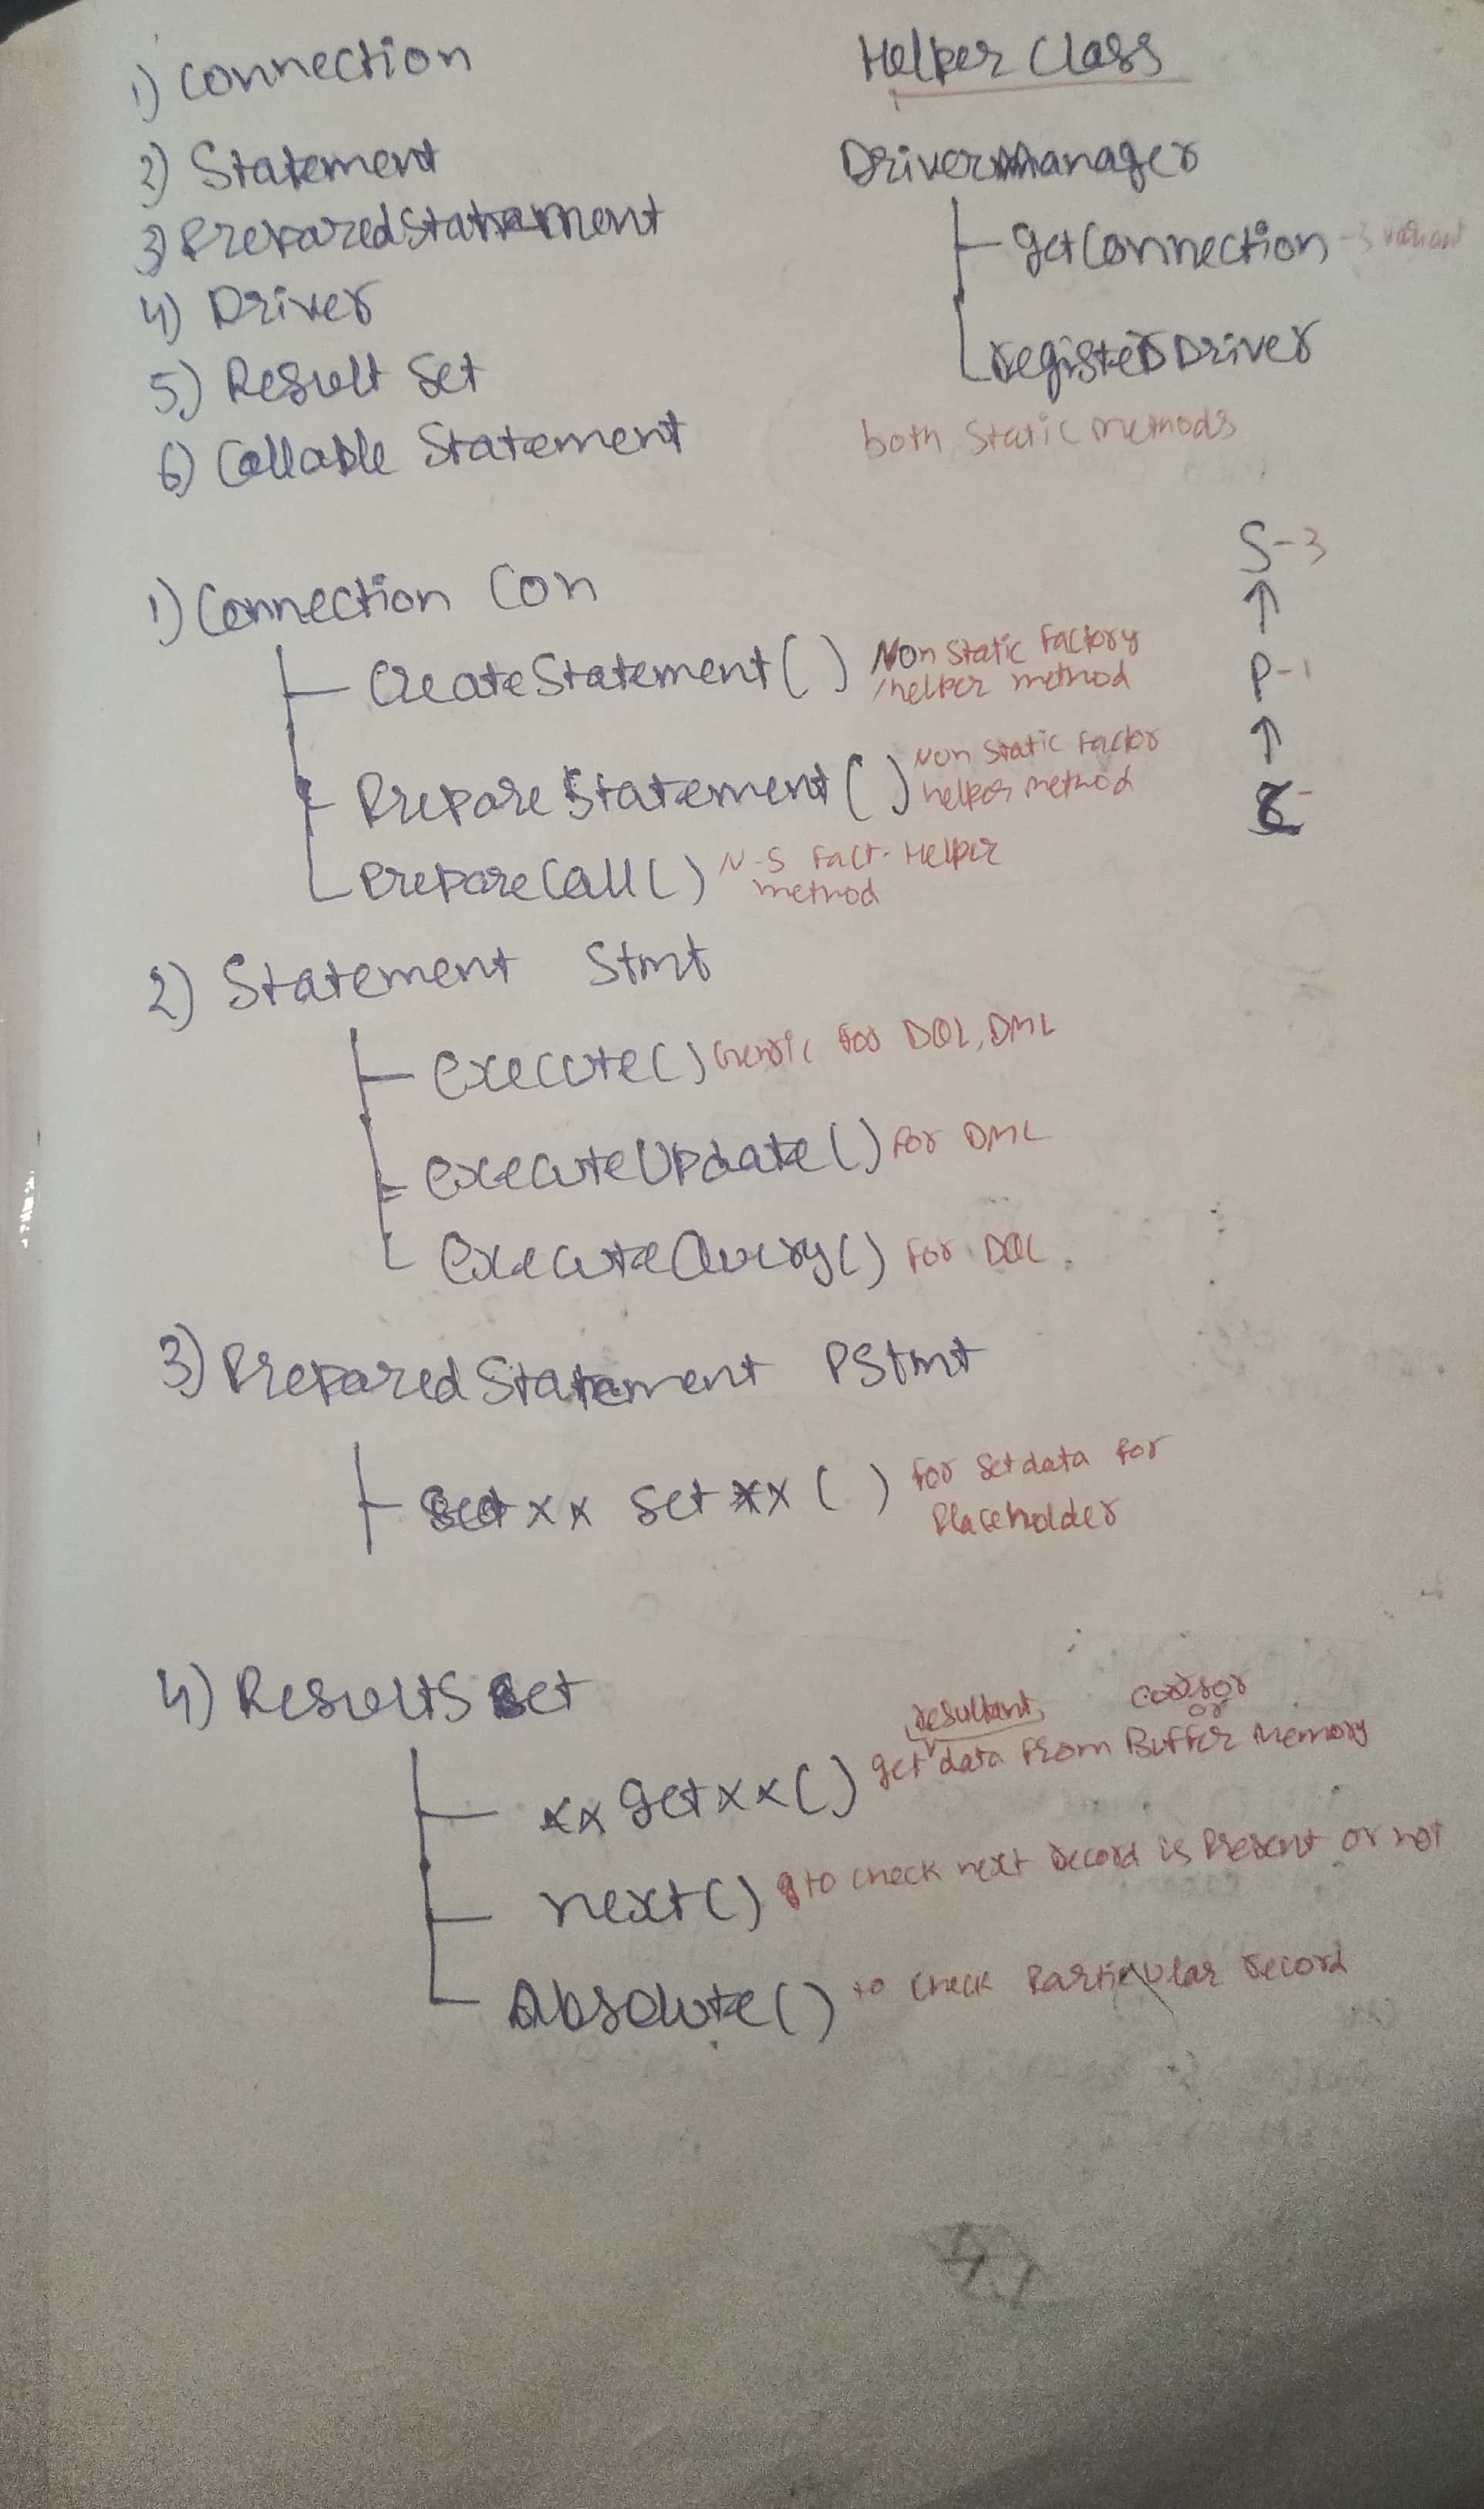 1) Connection
2) Statement
3) PreparedStatement
4) Driver
5) Result Set
6) Callable Statement
Helper Class
DriverManager
getConnection - 3 variant
registerDriver
both static methods
S-3
↑
P-1
↑
C-
1) Connection Con
CreateStatement() Non Static Factory
/helper method
PrepareStatement() Non Static Factor
helper method
PrepareCall() N-S Fact. Helper
method
2) Statement Stmt
execute() Genric for DQL, DML
executeUpdate() For DML
executeQuery() For DQL
3) PreparedStatement PStmt
set xx set xx () for set data for
Placeholder
4) ResultS Set
resultant cursor
or
xx getxx() get data From Buffer Memory
next() to check next record is Present or not
Absolute() to check Particular record